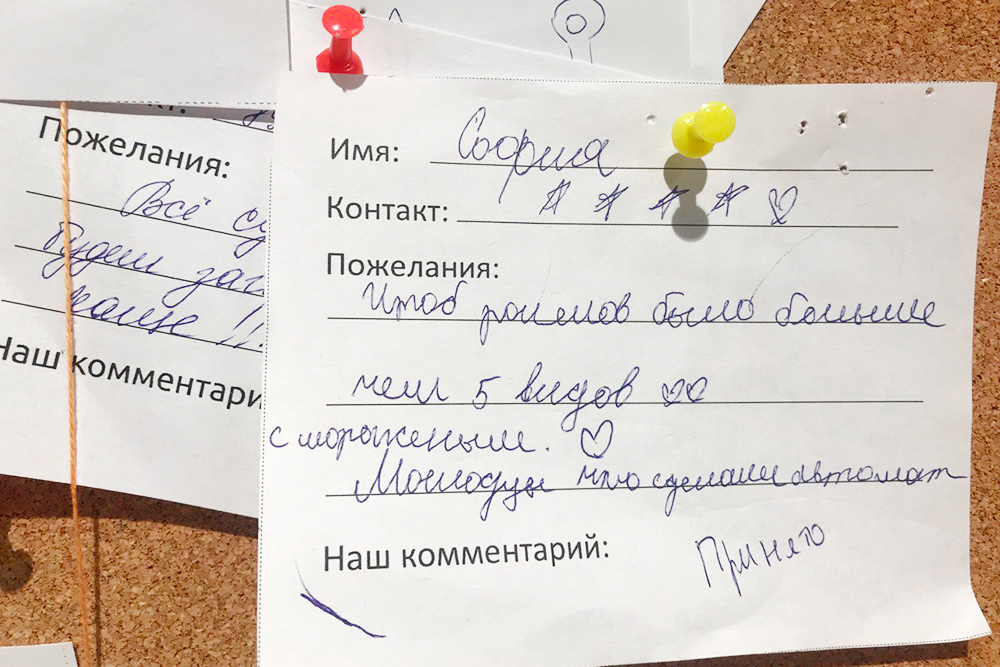 Пожелания:
Всё су
Будем за
чаще !!
Наш комментари
Имя: София
Контакт: * * * * ♡
Пожелания:
Чтоб роллов было больше
чем 5 видов ♡♡
с мороженым. ♡
Молодцы что сделали автомат
Наш комментарий: Принято